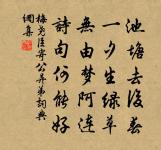 池塘去後春
一夕生綠草
無由夢阿連
詩句何能好
梅堯臣寄公异弟詞典
網集